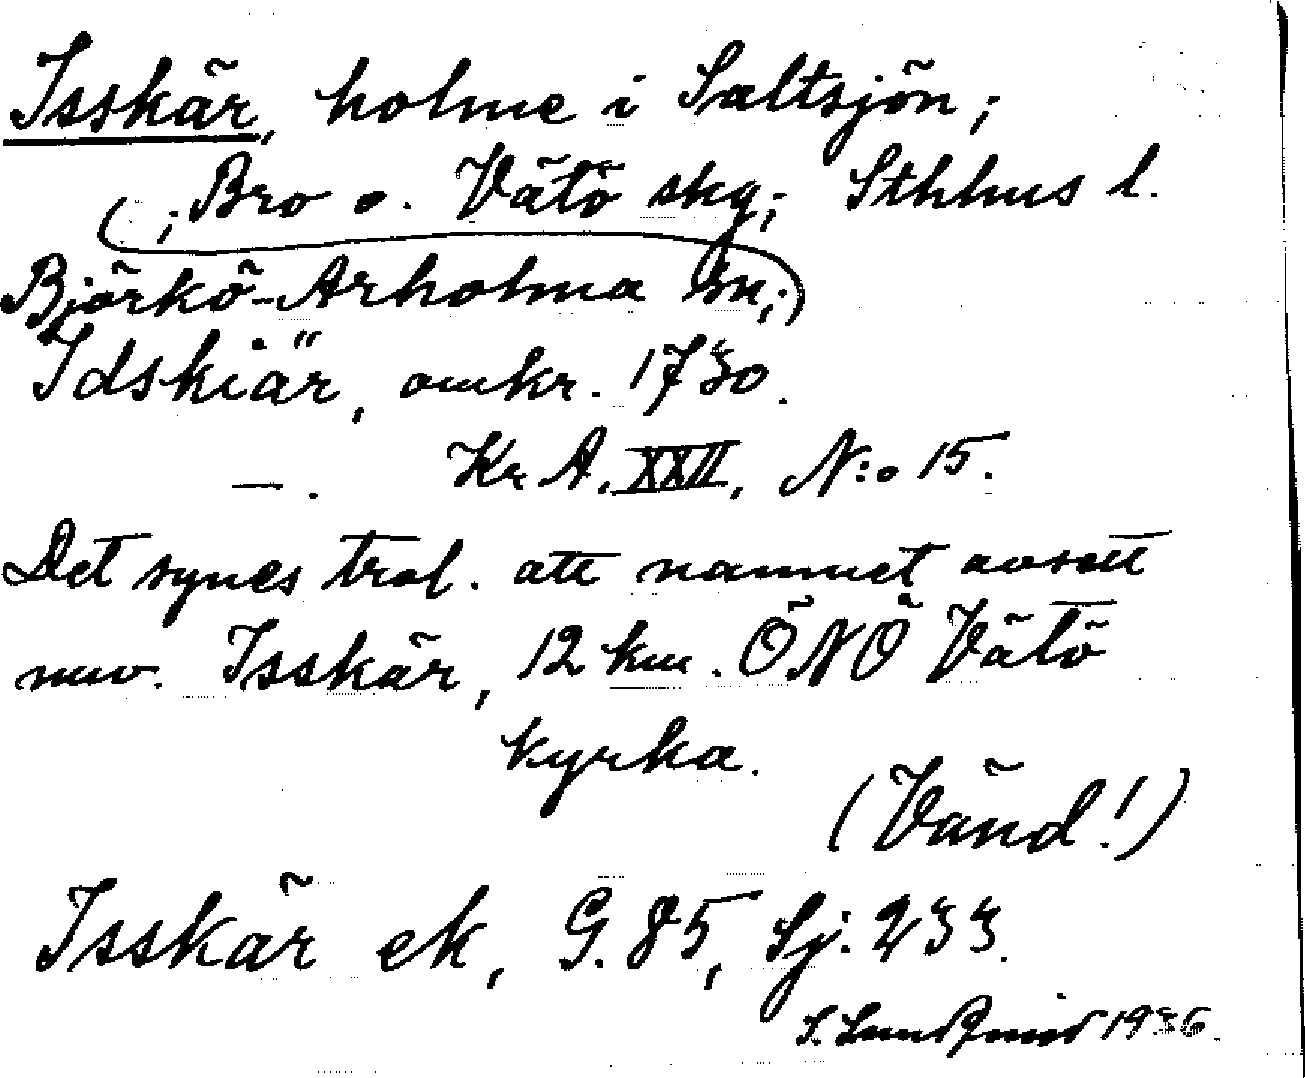 Isskär, holme i Saltsjön;
; Bro o. Vätö skg; Sthhus l.
Björkö-Arholma sn;
Idskiär, omkr. 1730.
—. Kr A, XXII, N:o 15.
Det synes trol. att namnet avsett
nuv. Isskär, 12 km. ÖNÖ Vätö
kyrka.
(Vänd!)
Isskär ek, G. 85, Sj: 233.
S. 1936.